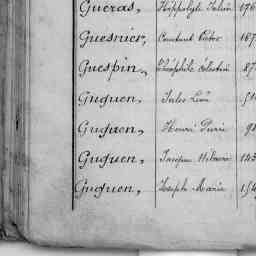 Gueras, Hippolyte Julien 176
Guesnier, Constant Victor 167
Guespin, Théophile Célestin 87
Guguen, Jules Léon
Guguen, Henri Pierre
Guguen, Jacques Hilaire 143
Guguen, Joseph Marie 154